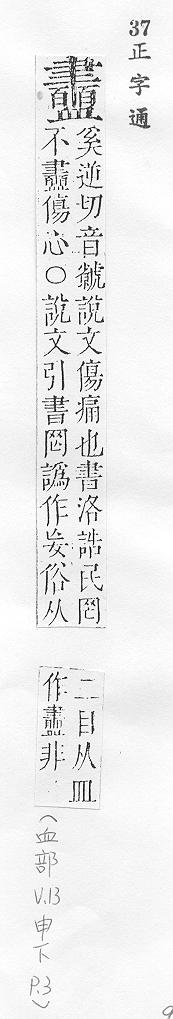 37 正字通
衋
奚逆切音虩說文傷痛也書洛誥民罔
不衋傷心○說文引書罔譌作妄俗从
二目从皿
作衋非
(血部 V.13 申下 P.3)